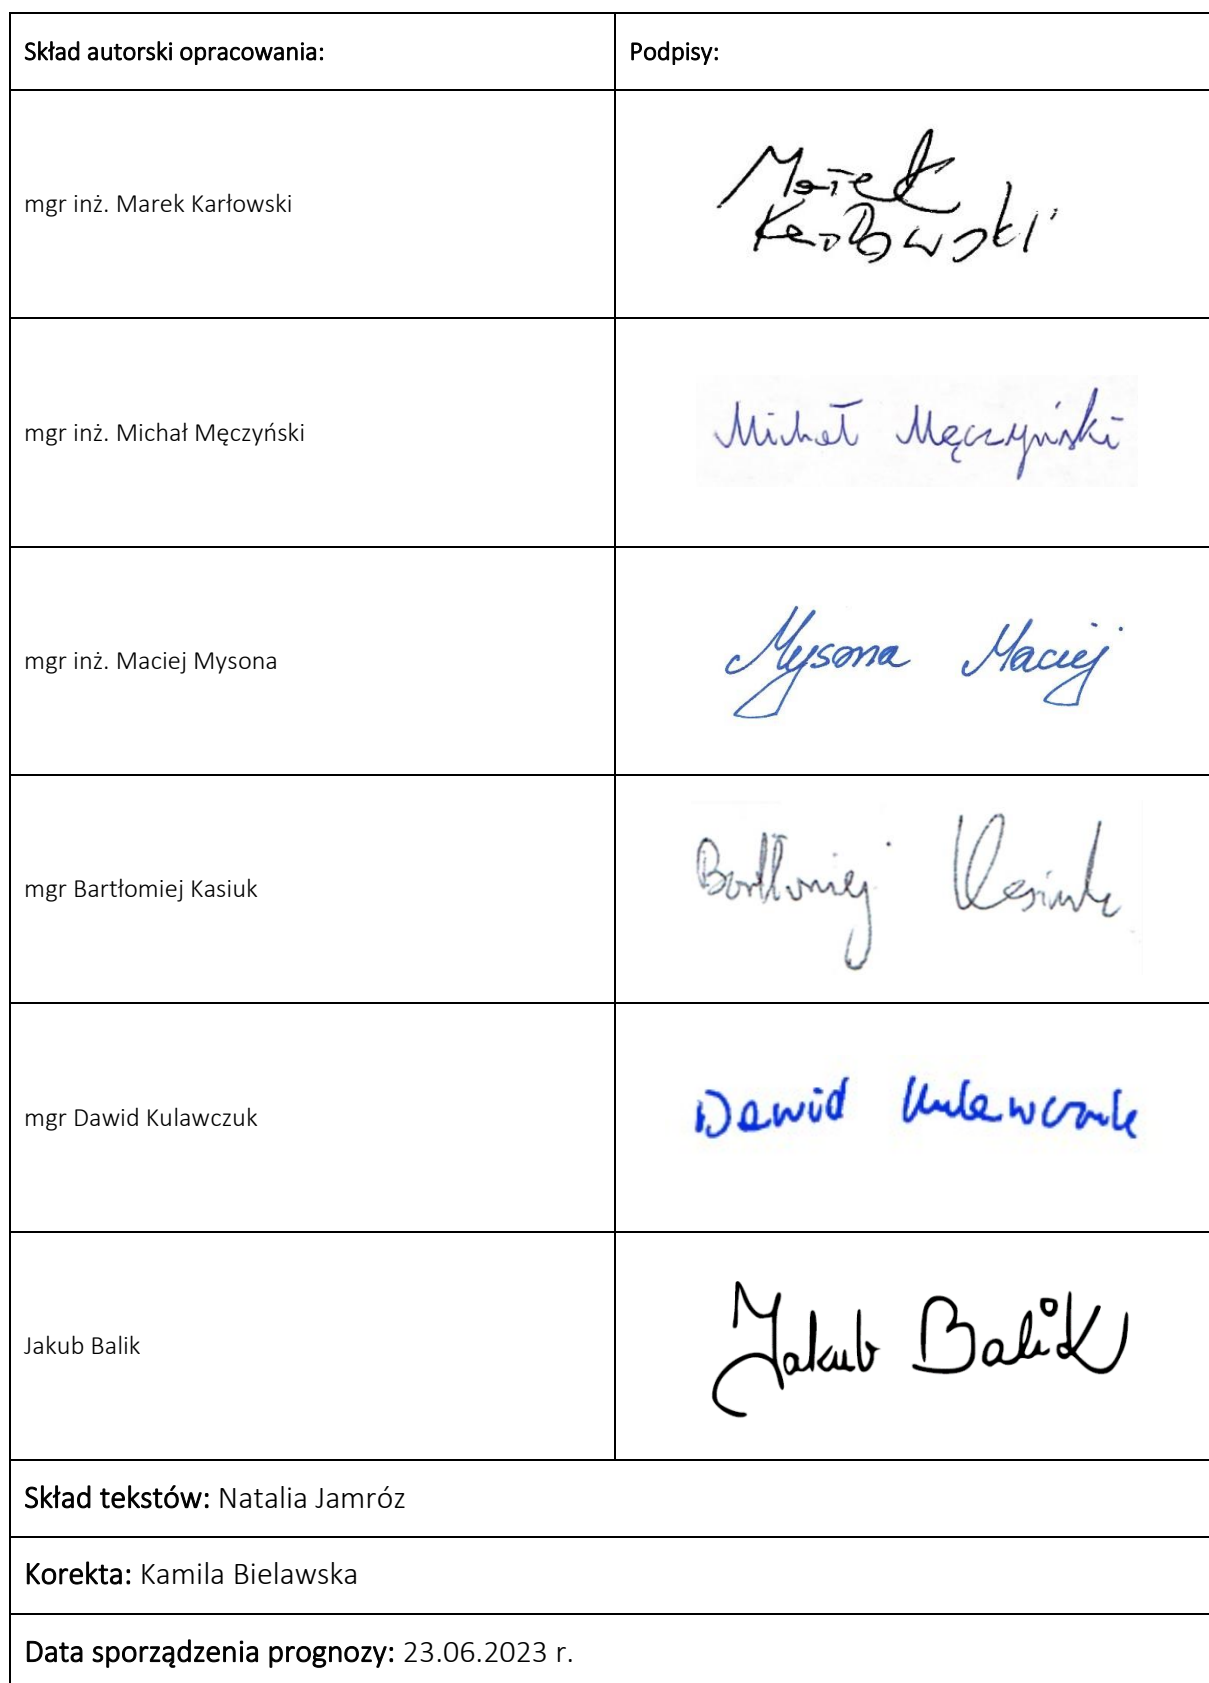 Skład autorski opracowania:
Podpisy:
mgr inż. Marek Karłowski
Marek
Karłowski
mgr inż. Michał Męczyński
Michał Męczyński
mgr inż. Maciej Mysona
Mysona Maciej
mgr Bartłomiej Kasiuk
Bartłomiej Kasiuk
mgr Dawid Kulawczuk
Dawid Kulawczuk
Jakub Balik
Jakub Balik
Skład tekstów: Natalia Jamróz
Korekta: Kamila Bielawska
Data sporządzenia prognozy: 23.06.2023 r.